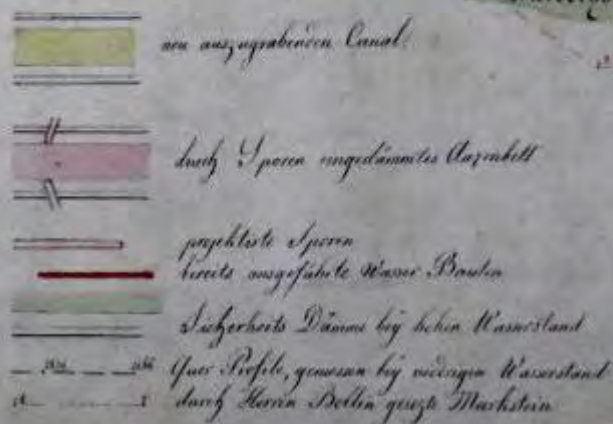 neu auszugrabenden Canal.
durch Sporen eingedämmtes Aarenbett
projektirte Sporen
bereits ausgeführte Wasser Bauten
Sicherheits Dämme bey hohen Wasserstand
Quer Profile, gemessen bey niedrigen Wasserstand
durch Herren Bollin gesezte Marchstein